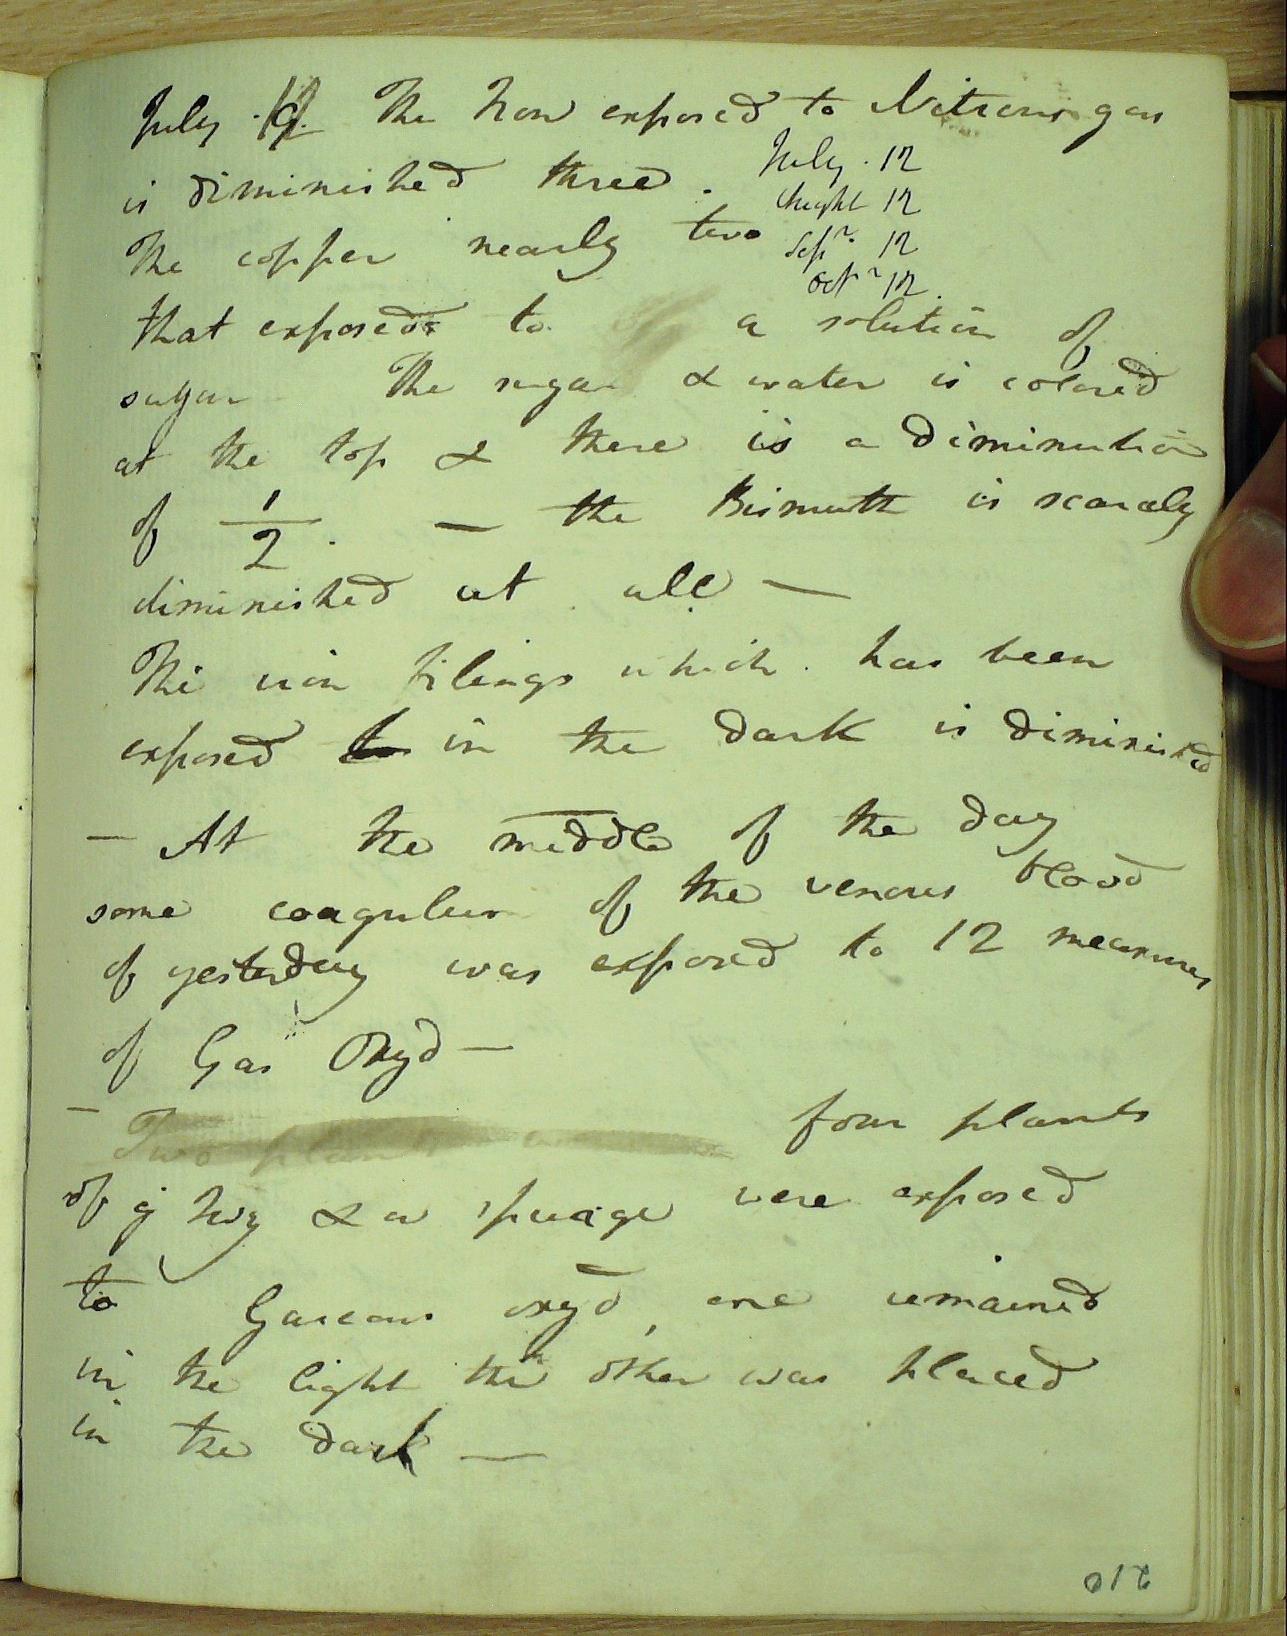 July 19 The Iron exposed to Nitrous gas
is diminished three.
July. 12
August 12
Sepr. 12
Octr 12.
The copper nearly two
that exposed to a solution of
sugar The sugar & water is colored
at the top & there is a diminution
of 1/2. — the Bismuth is scarcely
diminished at all —
The iron filings which has been
exposed to in the dark is diminished
— At the middle of the day
some coagulum of the venous blood
of yesterday was exposed to 12 measures
of Gas Oxyd —
— Two plants four plants
of & a were exposed
to Gaseous oxyd, one remained
in the light the other was placed
in the dark —
210